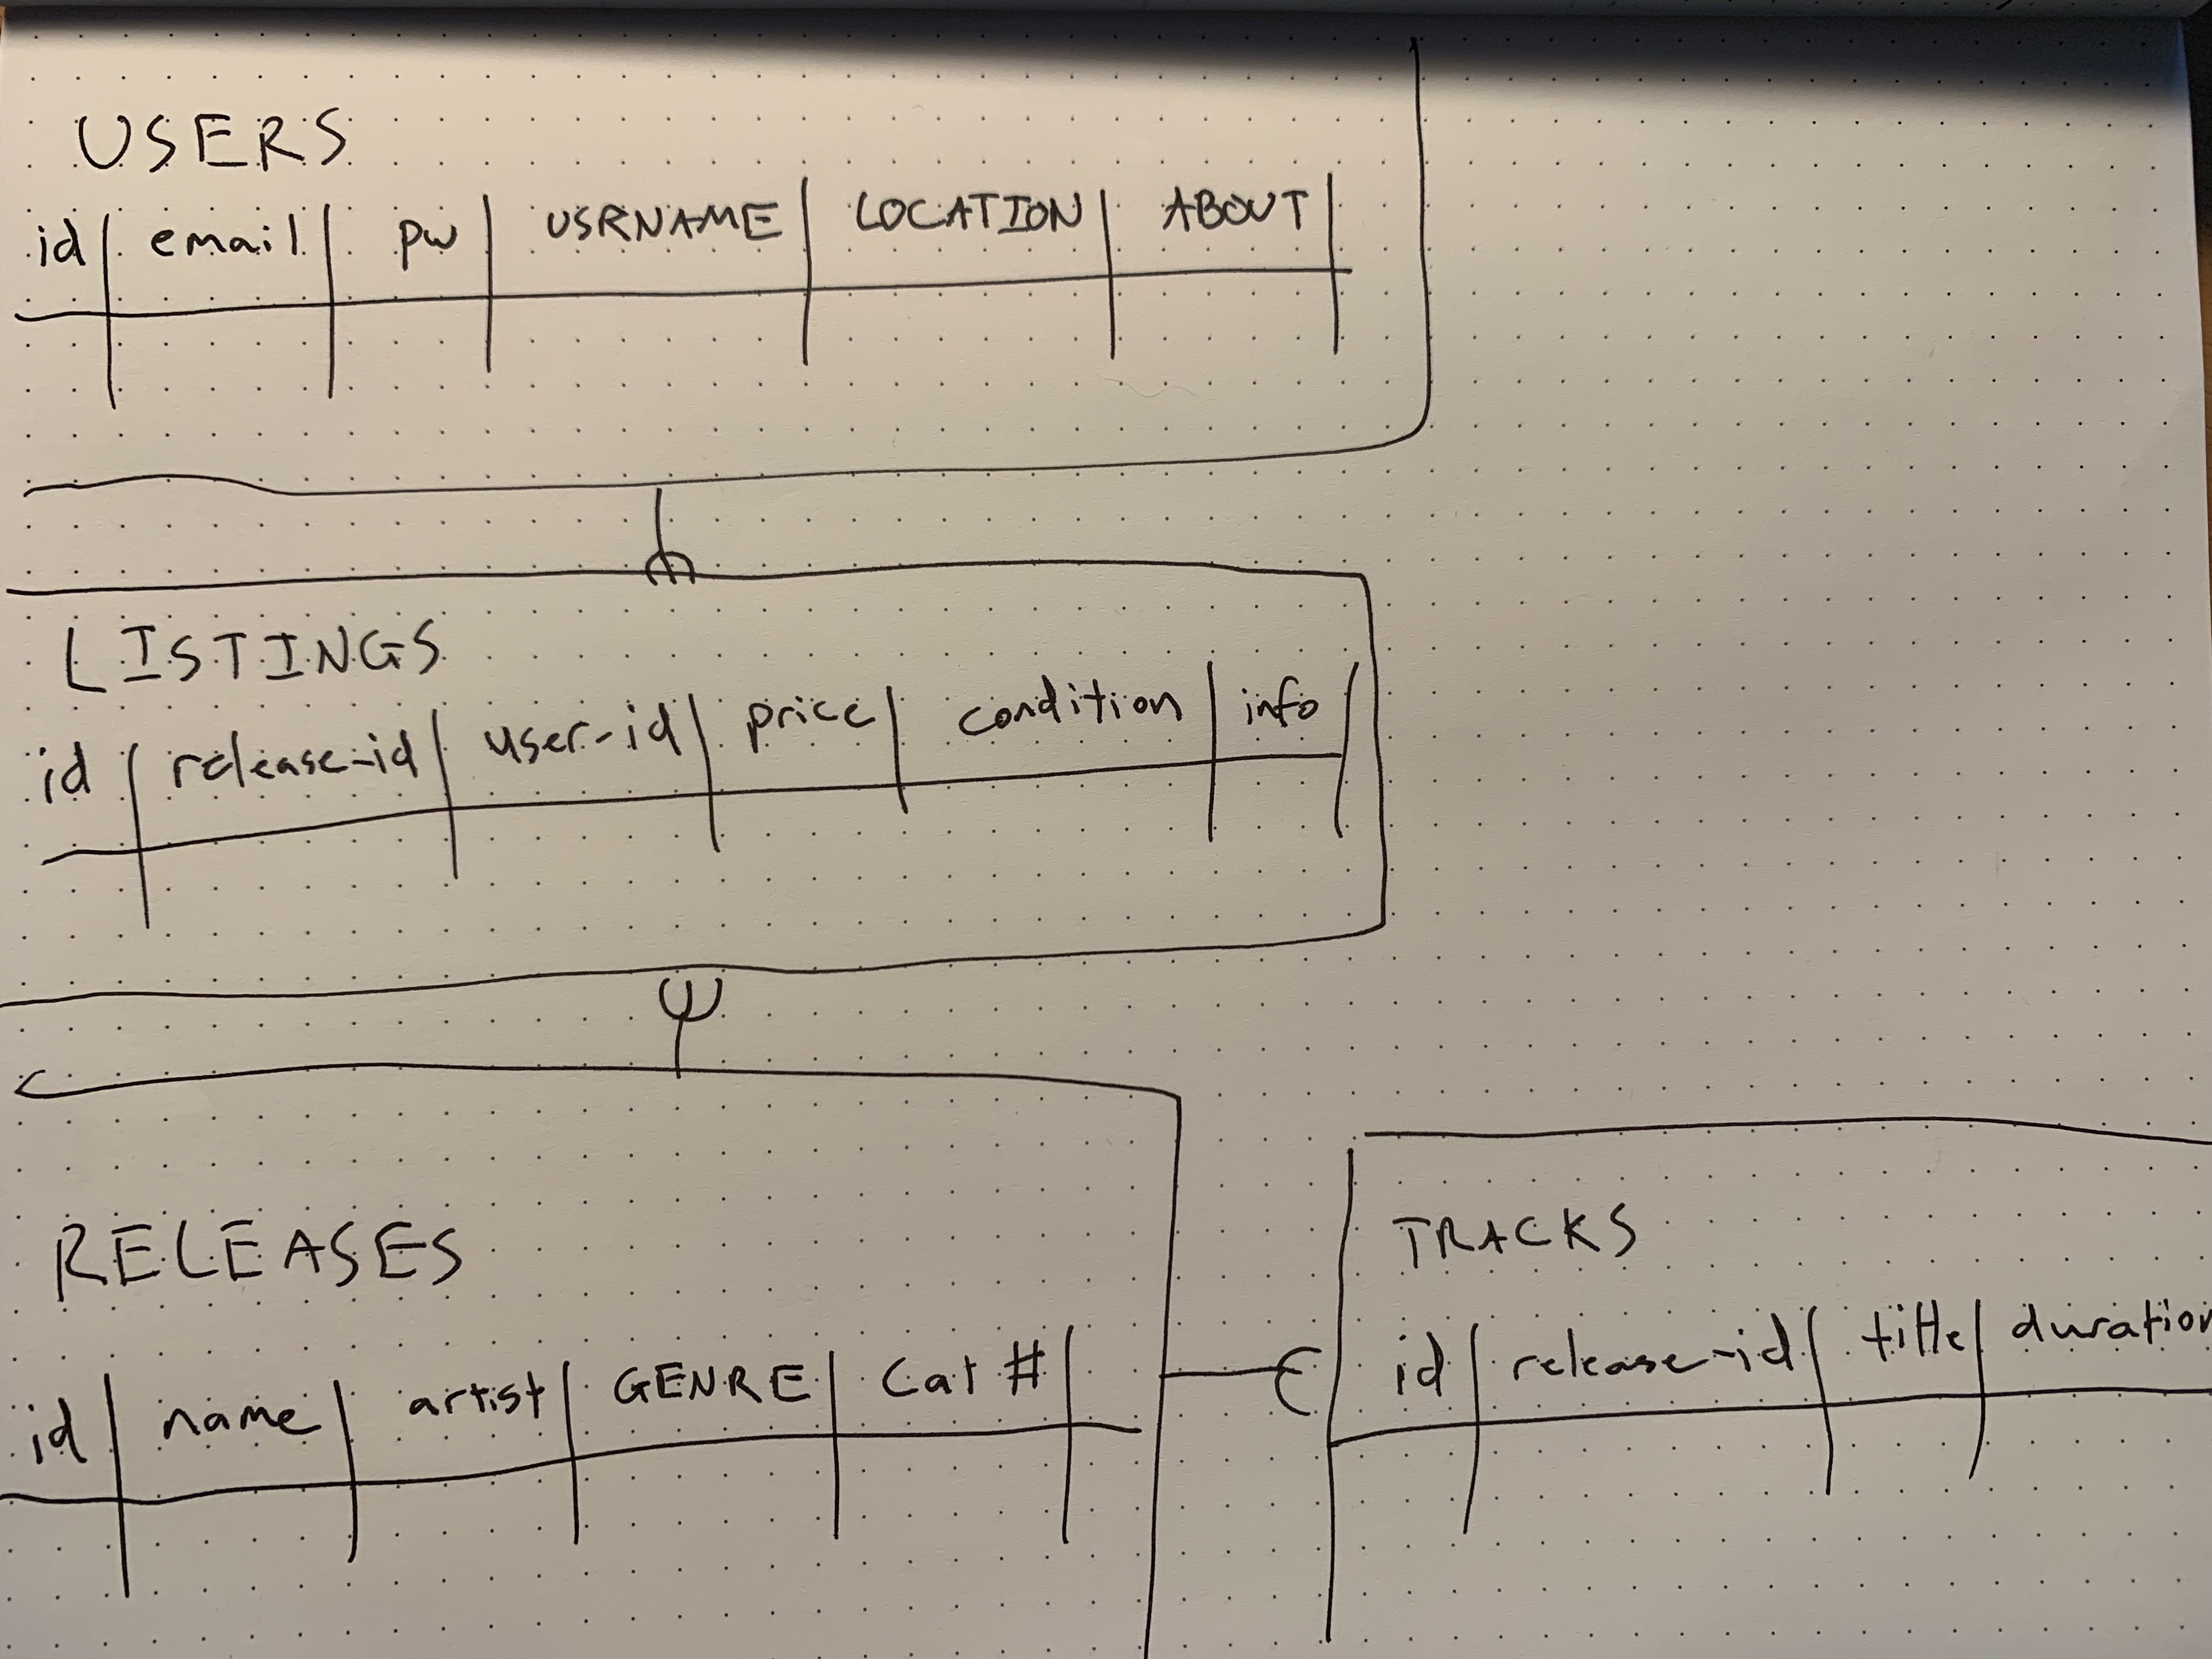 USERS
id email pw USRNAME LOCATION ABOUT
LISTINGS
id release-id user-id price condition info
RELEASES
id name artist GENRE Cat #
TRACKS
id release-id title duration